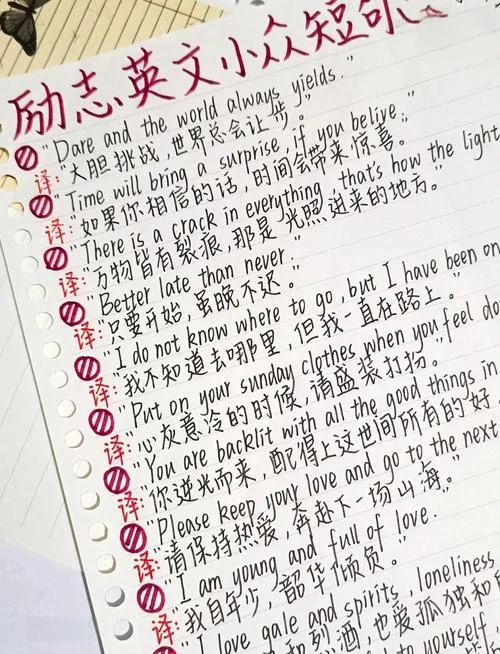 励志英文小众短句
"Dare and the world always yields."
译:"大胆挑战,世界总会让步。"
"Time will bring a surprise, if you belive."
译:"如果你相信的话,时间会带来惊喜。"
"There is a crack in everything, that's how the light
译:"万物皆有裂痕,那是光照进来的地方。"
"Better late than never.
译:"只要开始,虽晚不迟。"
"I do not know where to go, but I have been on
译:"我不知道去哪里,但我一直在路上。"
"Put on your sunday clothes when you feel do
译:"心灰意冷的时候,请盛装打扮。"
"You are backlit with all the good things in
译:"你逆光而来,配得上这世间所有的好。
"Please keep your love and go to the next
译:"请保持热爱,奔赴下一场山海。"
"I am young and full of love.
译:"我自年少,韶华倾负。"
"I love gale and spirits, loneliness
译: 和烈酒,也爱孤独和
to yourself